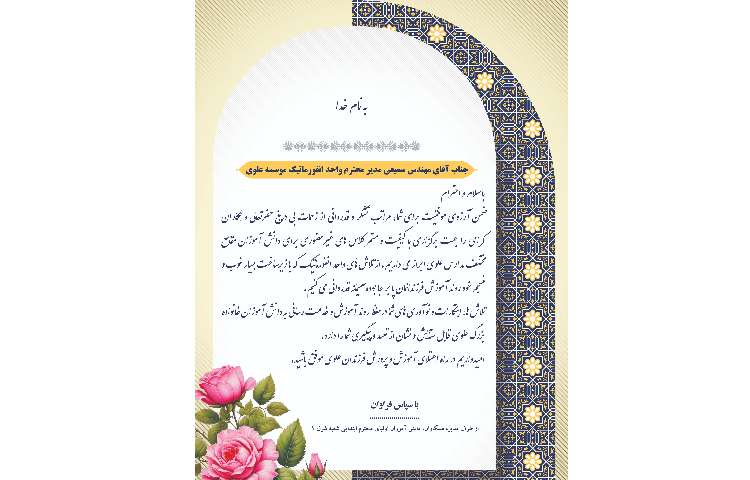 به نام خدا
جناب آقای مهندس سمیعی مدیر محترم واحد انفورماتیک موسسه علوی
با سلام و احترام
ضمن آرزوی موفقیت برای شما، مراتب تشکر و قدردانی از زحمات بی دریغ حضرتعالی و همکاران
گرامی را جهت برگزاری با کیفیت و مستمر کلاس های غیر حضوری برای دانش آموزان مقاطع
مختلف مدارس علوی ابراز می داریم. از تلاش های واحد انفورماتیک که با زیرساخت بسیار خوب و
خود روند آموزش فرزندانمان را بر جا بوده صمیمانه قدردانی می کنیم.
تلاش ها، ابتکارات و نوآوری های شما در حفظ روند آموزش و خدمت رسانی به دانش آموزان خانواده
بزرگ علوی قابل ستایش و نشان از تعهد و پیگیری شما دارد.
امیدواریم در راه اعتلای آموزش و پرورش فرزندان علوی موفق باشید.
با سپاس فراوان
از طرف مدیر، همکاران، دانش آموزان اولیای محترم ابتدایی شعبه شرق ۲